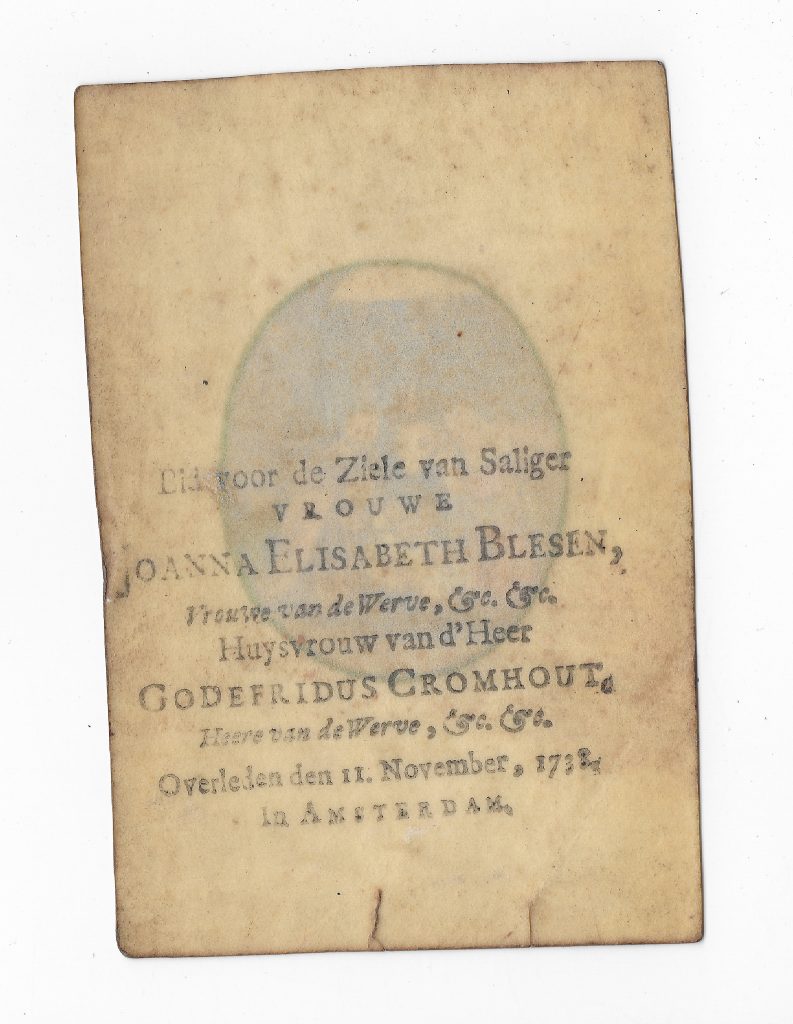 Bidt voor de Ziele van Saliger
VROUWE
JOANNA ELISABETH BLESEN,
Vrouwe van de Werve, &c. &c.
Huysvrouw van d'Heer
GODEFRIDUS CROMHOUT,
Heere van de Werve, &c. &c.
Overleden den 11. November, 1738.
in AMSTERDAM.